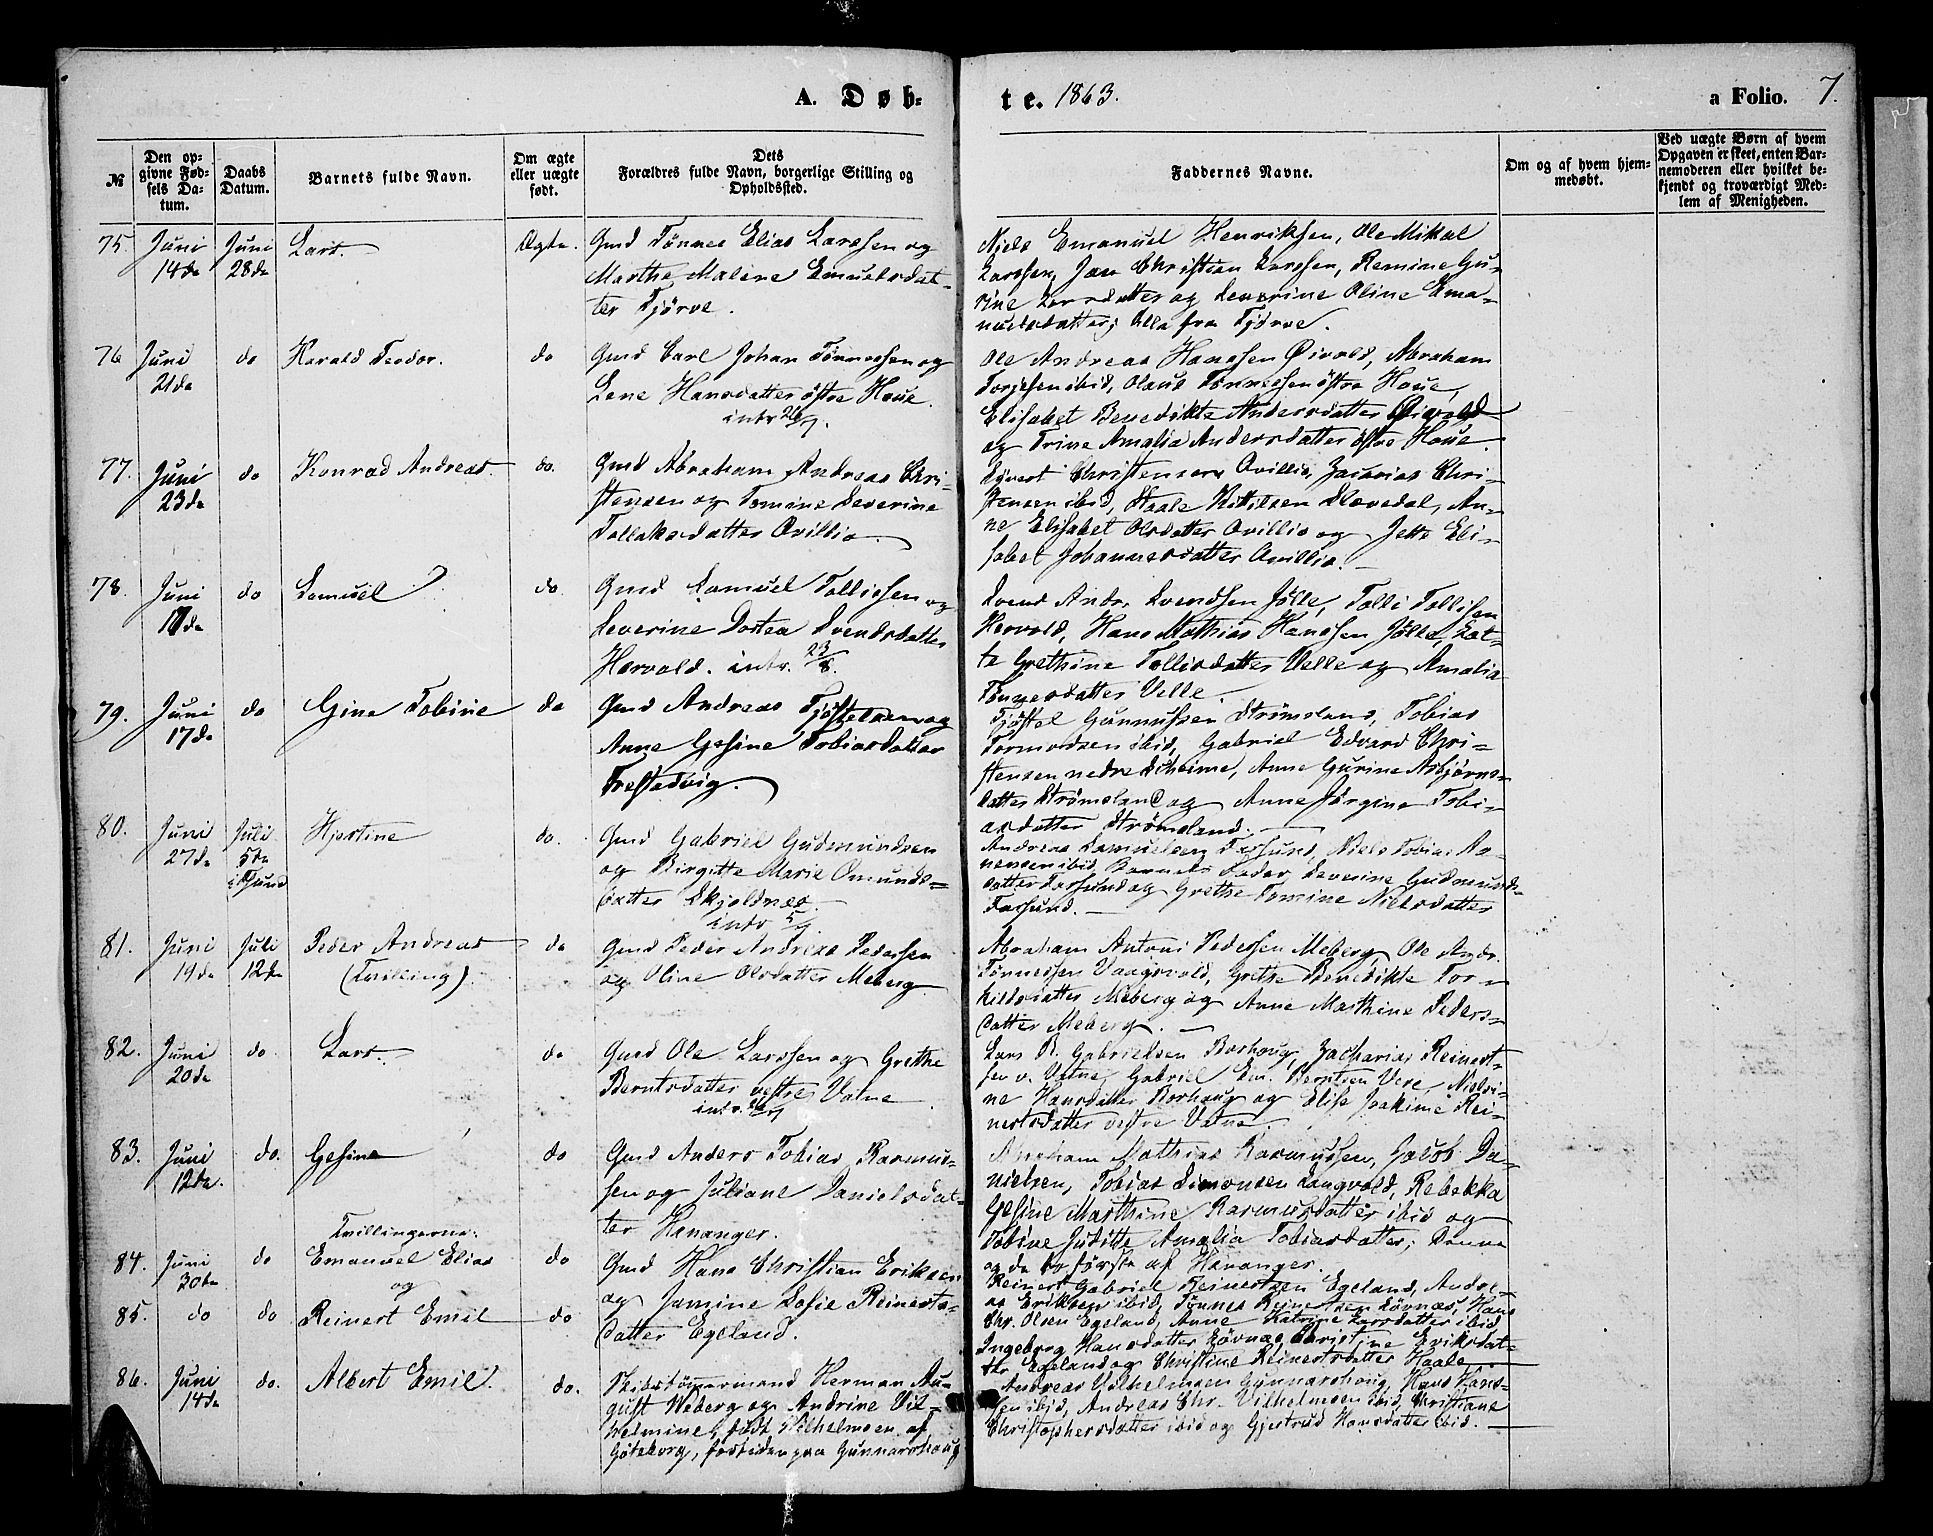 A. Døb-
te. 1863.
a Folio. 7.
№
Den op-
givne Fød-
sels Da-
tum.
Daabs
Datum.
Barnets fulde Navn.
Om ægte
eller uægte
født.
Dets
Forældres fulde Navn, borgerlige Stilling og
Opholdsted.
Faddernes Navne.
Om og af hvem hjem-
medøbt.
Ved uægte Børn af hvem
Opgaven er skeet, enten Bar-
nemoderen eller hvilket be-
kjendt og troværdigt Med-
lem af Menigheden.
75. Juni 14de Juni 28de Lars. Ægte.
Gmd Tønnes Elias Larssen og
Marthe Malene Emuelsdat-
ter Tjørve.
Niels Emanuel Henriksen, Ole Mikal
Larssen, Jan Christian Larssen, Remine Gu-
rine Larsdatter og Severine Oline Ema-
nuelsdatter; Alle fra Tjørve.
76 Juni 21de do Harald Teodor. do
Gmd Carl Johan Tønnessen og
Lene Hansdatter østre Haue.
intr 26/7.
Ole Andreas Hanssen Øivold, Abraham
Torjesen ibid, Olaus Tønnessen østre Haue,
Elisabet Benedikte Andersdatter Øivold
og Trine Amalia Andersdatter østre Haue.
77. Juni 23de do Konrad Andreas do.
Gmd Abraham Andreas Chri-
stensen og Tomine Severine
Tollaksdatter Ovillia.
Syvert Christensen Ovillia, Zacarias Chri-
stensen ibid, Staale Kittelsen Slævedal, An-
ne Elisabet Olsdatter Ovillia og Jette Eli-
sabet Johannesdatter Ovillia.
78. Juni 17de do Samuel do
Gmd Samuel Tollissen og
Severine Dortea Svendsdatter
Hervold. intr. 23/8.
Svend Andr. Svendsen Jølle, Tolli Tollisen
Hervold, Hans Mathias Hanssen Jølle, Lat-
te Grethine Tollisdatter Velle og Amalia
Tønnesdatter Velle.
79. Juni 17de do Gine Tobine do
Gmd Andreas Tjøstelsen og
Anne Gesine Tobiasdatter
Frestadvig.
Tjøstel Gunnufsen Strømsland, Tobias
Tormodsen ibid, Gabriel Edvard Chri-
stensen nedre Skeime, Anne Gurine Asbjørns-
datter Strømsland og Anne Jørgine Tobi-
asdatter Strømsland.
80. Juni 27de Juli 5te i Fsund Hjertine do.
Gmd Gabriel Gudmundsen
og Birgitte Marie Omunds-
datter Skjoldnæs.
intr 5/7.
Andreas Samuelsen Farsund, Niels Tobias Aa-
nensen ibid, Barnets Fader, Severine Gudmunds-
datter Farsund og Grethe Tomine Nielsdatter
Farsund.
81. Juni 19de Juli 12de Peder Andreas do
(Tvilling)
Gmd Peder Andreas Pedersen
og Oline Olsdatter Meberg
Abraham Antoni Pedersen Meberg, Ole Andr.
Tønnessen Vaagsvold, Grethe Benedikte Tor-
kildsdatter Meberg og Anne Marthine Peders-
datter Meberg.
82. Juni 20de do. Lars. do
Gmd Ole Larssen og Grethe
Berntsdatter vestre Vatne.
intr. 26/7
Lars B. Gabrielsen Borhoug, Zacharias Reinert-
sen v. Vatne, Gabriel Em. Berntsen Vere, Nielsi-
ne Hansdatter Borhaug og Elise Joakime Rei-
nertsdatter vestre Vatne.
83. Juni 12de do. Gesine do
Gmd Anders Tobias Rasmus-
sen og Juliane Danielsdat-
ter Hananger.
Abraham Mathias Rasmussen, Jacob Da-
nielsen, Tobias Simonsen Langvold, Rebekka
Gesine Marthine Rasmusdatter ibid og
Tobine Juditte Amalia Tobiasdatter; Denne
og de to første af Hananger.
Tvillingerne.
84. Juni 30te do Emanuel Elias do
og
85. do do Reinert Emil do
Gmd Hans Christian Eriksen
og Jamine Sofie Reinerts-
datter Egeland.
Reinert Gabriel Reinertsen Egeland, Andre-
as Eriksen ibid, Tønnes Reinertsen Løvnæs, Hans
Chr. Olsen Egeland, Anne Katrine Larsdatter ibid
Ingeborg Hansdatter Løvnæs, Christine Eriksdat-
ter Egeland og Christine Reinertsdatter Haale.
86. Juni 14de do. Albert Emil. do.
Skibstømmermand Herman Au-
gust Weberg og Andrine Vil-
helmine, født Wilhelmsen af
Gøteborg, fortiden paa Gunnarshoug
Andreas Vilhelmsen Gunnarshoug, Hans Hans-
sen ibid, Andreas Chr. Vilhelmsen ibid, Christiane
Christophersdatter ibid og Gjertrud Hansdatter ibid.